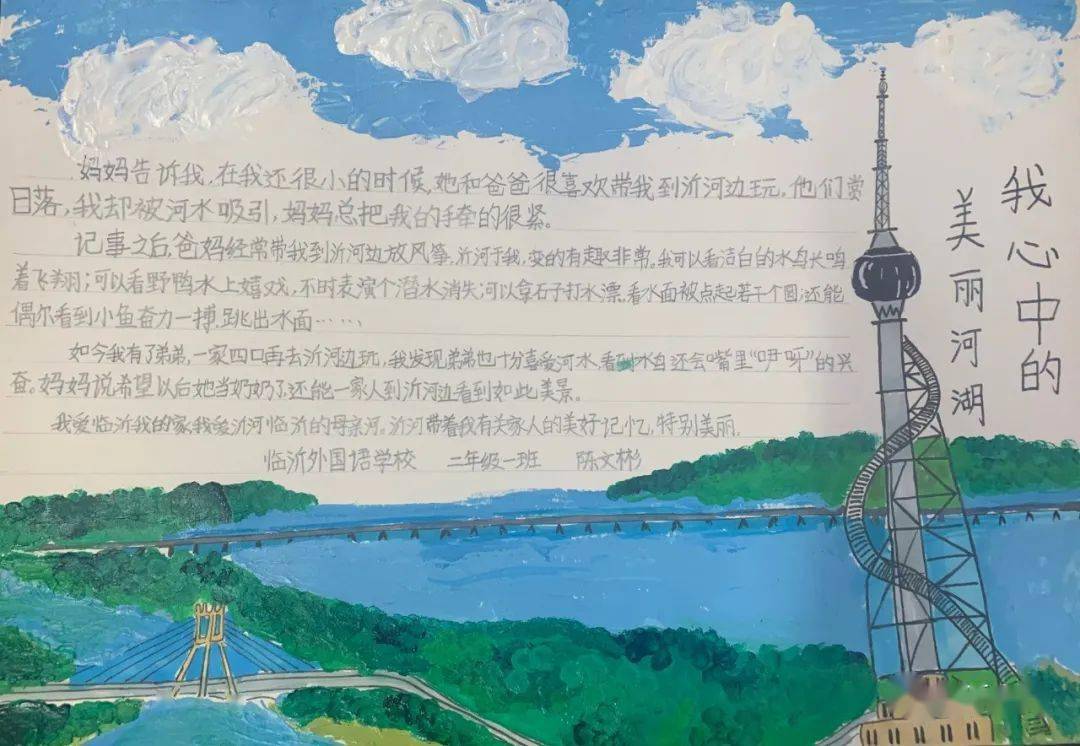 我心中的
美丽河湖
妈妈告诉我，在我还很小的时候，她和爸爸很喜欢带我到沂河边玩，他们赏
日落，我却被河水吸引，妈妈总把我的手牵的很紧。
记事之后，爸妈经常带我到沂河边放风筝，沂河于我，变的有趣非常。我可以看洁白的水鸟长鸣
着飞翔；可以看野鸭水上嬉戏，不时表演个潜水消失；可以拿石子打水漂，看水面被点起若干个圆；还能
偶尔看到小鱼奋力一搏，跳出水面……
如今我有了弟弟，一家四口再去沂河边玩，我发现弟弟也十分喜爱河水，看到水鸟还会嘴里“咿呀”的兴
奋。妈妈说希望以后她当奶奶了，还能一家人到沂河边看到如此美景。
我爱临沂我的家，我爱沂河临沂的母亲河。沂河带着我有关家人的美好记忆，特别美丽。
临沂外国语学校 二年级一班 陈文彬